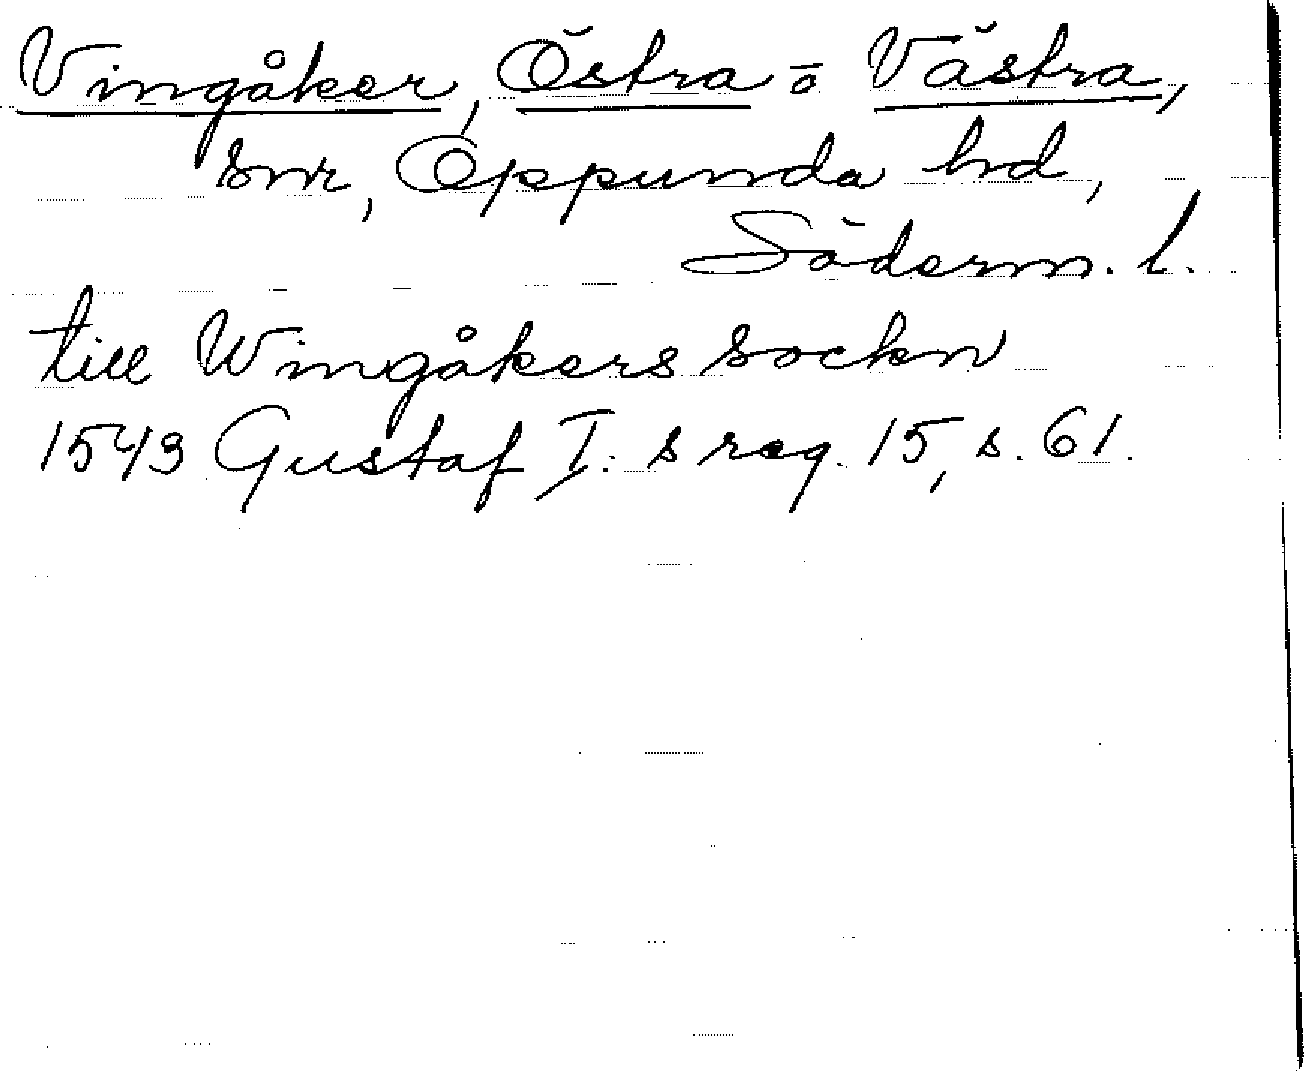 Vingåker, Östra o Västra,
snr, Oppunda hd,
Söderm. l.
till Wingåkers sockn
1543 Gustaf I: s reg. 15, s. 61.